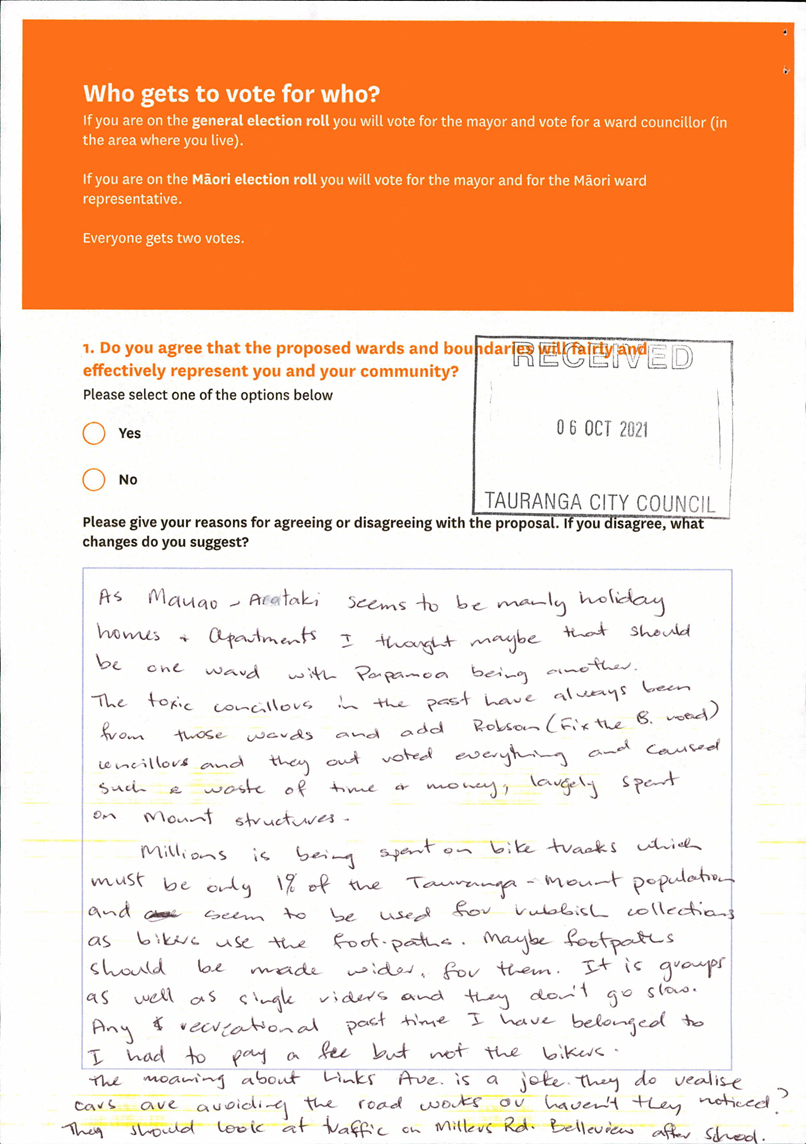 Who gets to vote for who?
If you are on the general election roll you will vote for the mayor and vote for a ward councillor (in
the area where you live).
If you are on the Māori election roll you will vote for the mayor and for the Māori ward
representative.
Everyone gets two votes.
1. Do you agree that the proposed wards and boundaries will fairly and
effectively represent you and your community?
Please select one of the options below
RECEIVED
06 OCT 2021
TAURANGA CITY COUNCIL
Yes
No
Please give your reasons for agreeing or disagreeing with the proposal. If you disagree, what
changes do you suggest?
As Mauao - Arataki seems to be manly holiday
homes + Apartments I thought maybe that should
be one ward with Papamoa being another.
The toxic councillors in the past have always been
from those wards and add Robson (Fix the B. road)
councillors and they out voted everything and caused
such a waste of time & money, largely spent
on Mount structures.
Millions is being spent on bike tracks which
must be only 1% of the Tauranga - Mount population
and seem to be used for rubbish collections
as bikers use the foot-paths. Maybe footpaths
should be made wider, for them. It is groups
as well as single riders and they don't go slow.
Any recreational past time I have belonged to
I had to pay a fee but not the bikers.
The moaning about Links Ave. is a joke. They do realise
cars are avoiding the road works or haven't they noticed?
They should look at traffic on Millers Rd. Belleview after school.